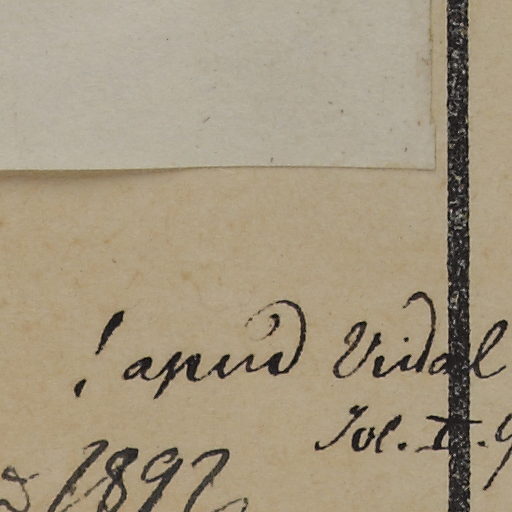 ! apud Vidal
Tol. II. 9
1892